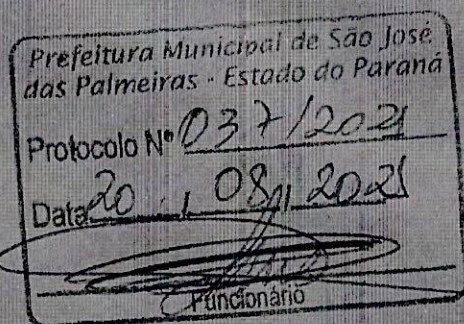 Prefeitura Municipal de São José
das Palmeiras - Estado do Paraná
Protocolo Nº 037/2021
Data 20 / 08 / 2021
Funcionário